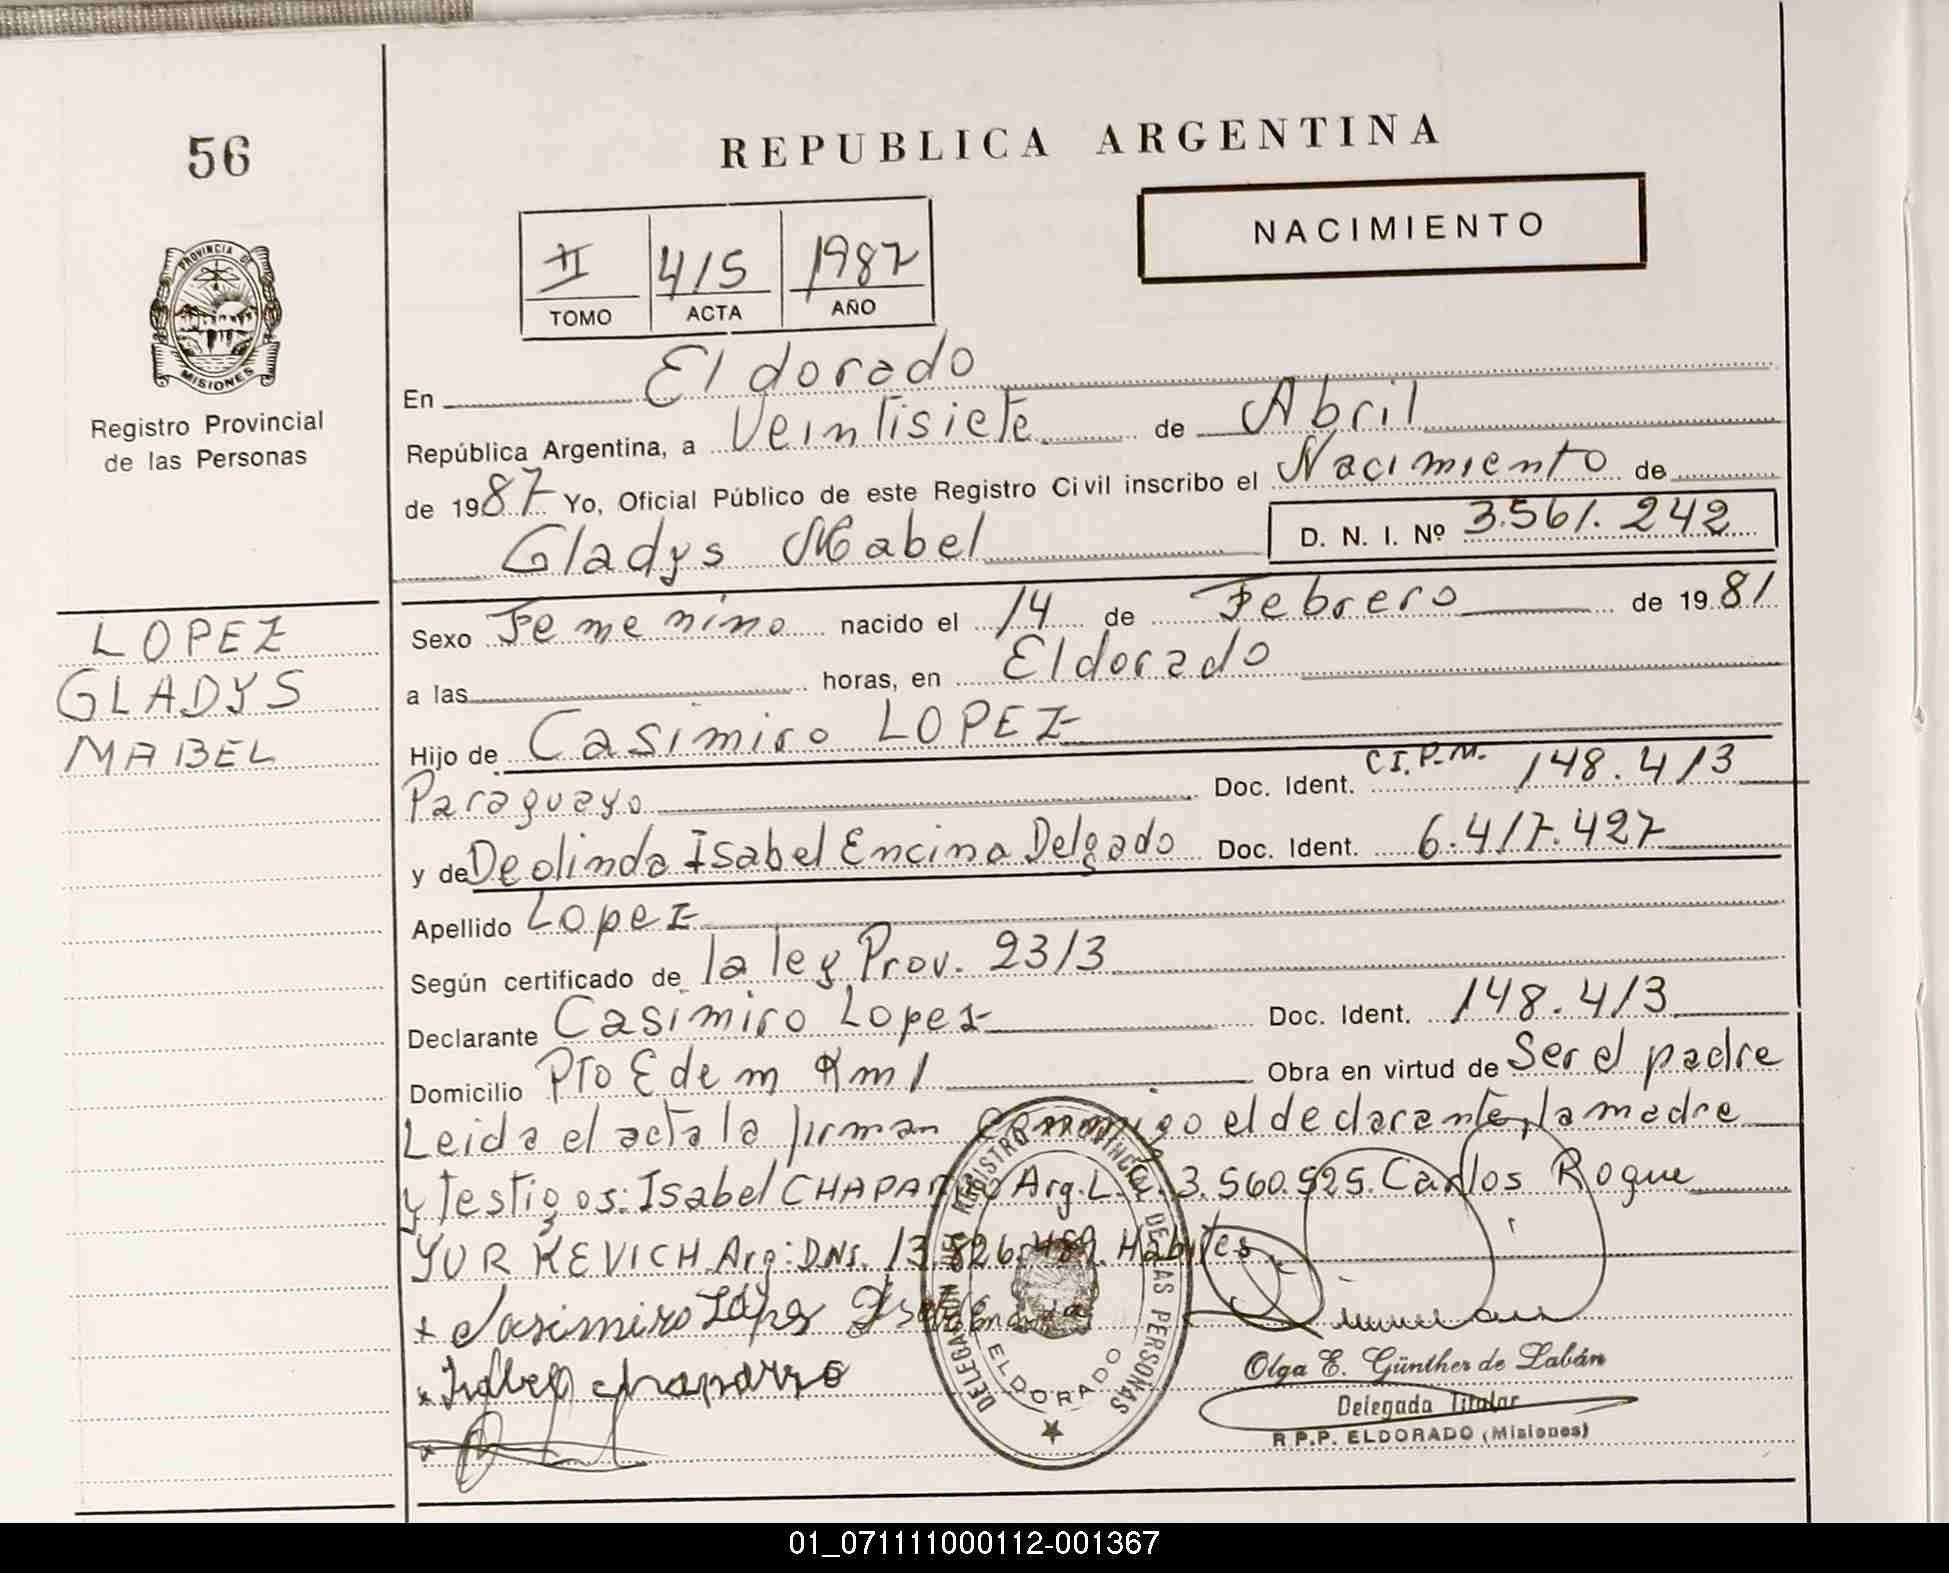 56
REPUBLICA ARGENTINA
NACIMIENTO
II 415 1987
TOMO ACTA AÑO
PROVINCIA DE MISIONES
Registro Provincial
de las Personas
En Eldorado
República Argentina, a Veintisiete de Abril
de 1987 Yo, Oficial Público de este Registro Civil inscribo el Nacimiento de
Gladys Mabel D. N. I. Nº 3.561.242
LOPEZ
GLADYS
MABEL
Sexo Femenino nacido el 14 de Febrero de 1981
a las horas, en Eldorado
Hijo de Casimiro LOPEZ
Paraguayo Doc. Ident. C.I.P.M. 148.413
y de Deolinda Isabel Encina Delgado Doc. Ident. 6.417.427
Apellido Lopez
Según certificado de la ley Prov. 2313
Declarante Casimiro Lopez Doc. Ident. 148.413
Domicilio Pto Edem Km 1 Obra en virtud de Ser el padre
Leida el acta la firman Conmigo el declarante, la madre
y testigos: Isabel CHAPARRO Arg. L.C. 3.560.525. Carlos Roque
YURKEVICH Arg: DNI. 13.826.489. Hábiles.
x Casimiro López
x Isabel chaparro
x
DELEGACION DEL REGISTRO PROVINCIAL DE LAS PERSONAS
ELDORADO
Olga E. Günther de Labán
Delegada Titular
R.P.P. ELDORADO (Misiones)
01_071111000112-001367